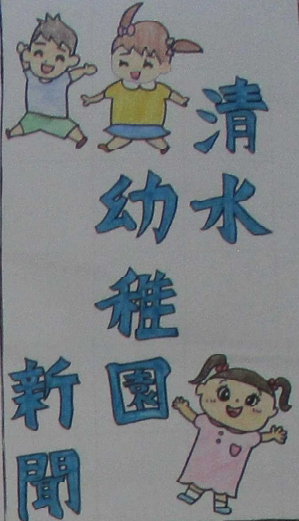 清水
幼稚園
新聞